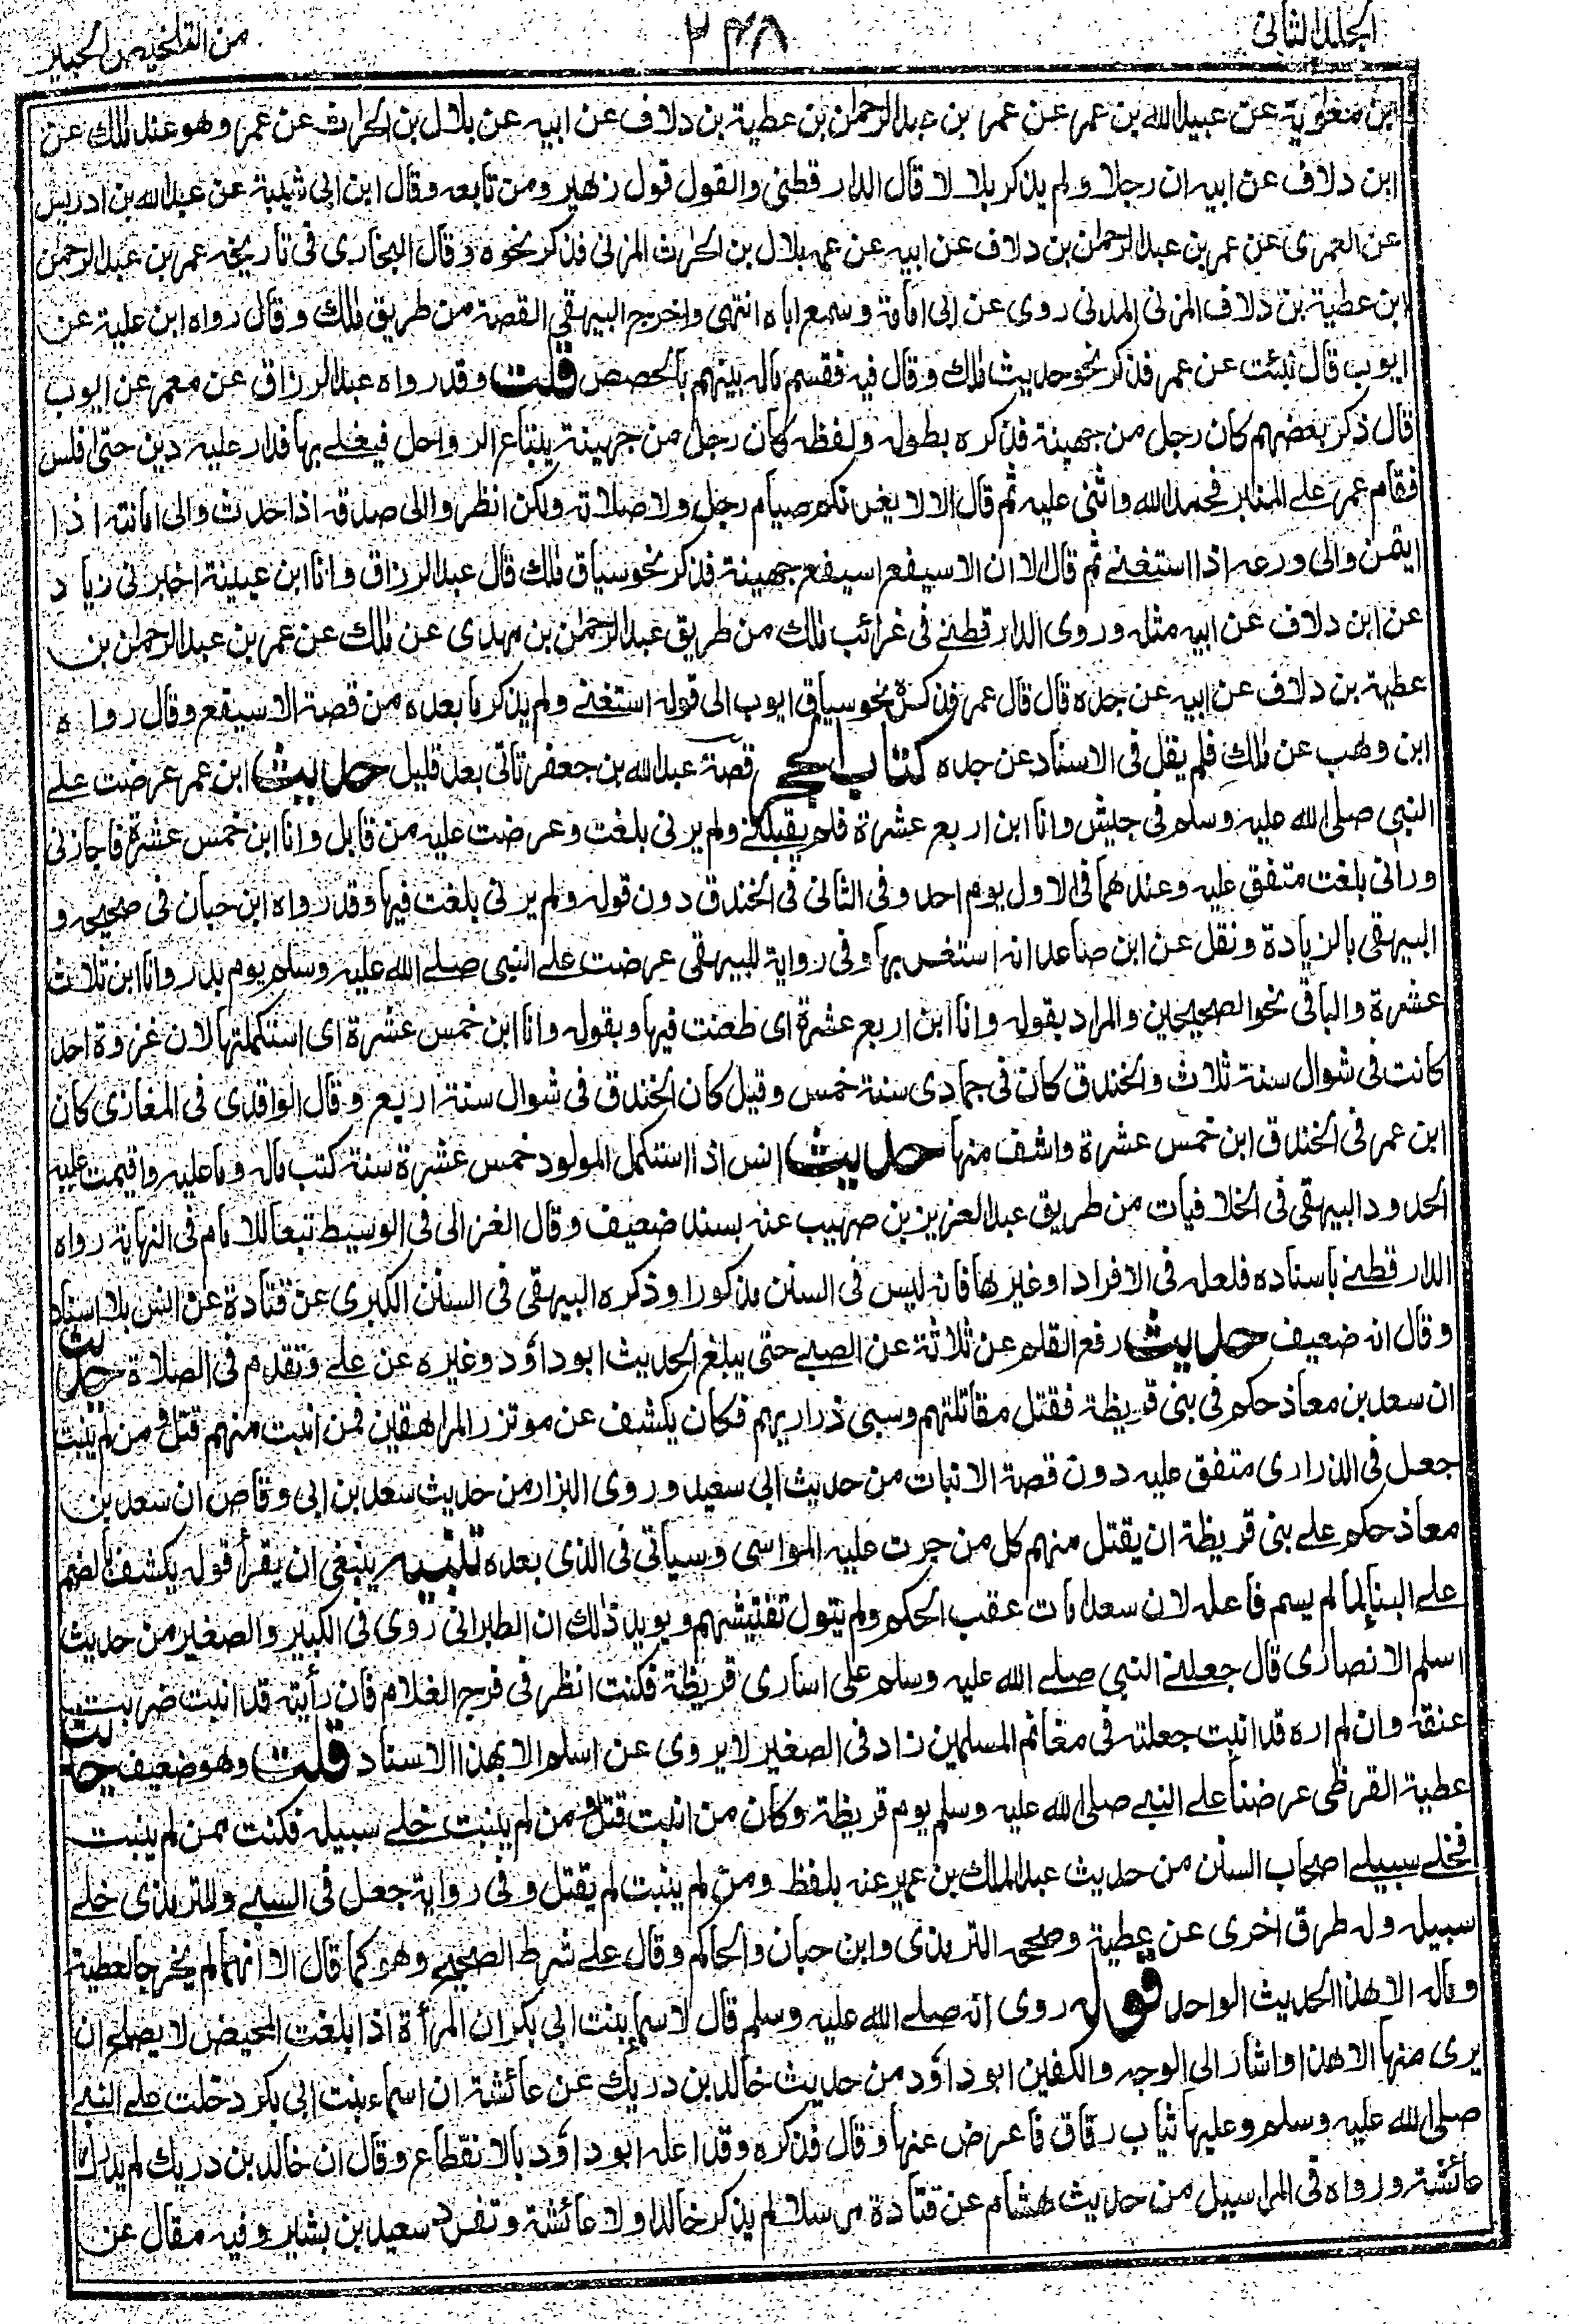 الجلد الثانى
٢٤٨
من التلخيص الحبير
ابن معٰوية عن عبيد الله بن عمر عن عمر بن عبد الرحمٰن بن عطية بن دلاف عن ابيه عن بلال بن الحارث عن عمر وهو عند مالك عن
ابن دلاف عن ابيه ان رجلا ولم يذكر بلالا قال الدارقطنى والقول قول زهير ومن تابعه وقال ابن ابى شيبة عن عبد الله بن ادريس
عن العمرى عن عمر بن عبد الرحمٰن بن دلاف عن ابيه عن عمه بلال بن الحٰرث المزنى فذكر نحوه وقال البخارى فى تاريخه عمر بن عبد الرحمٰن
ابن عطية بن دلاف المزنى المدنى روى عن ابى امامة وسمع اباه انتهى واخرج البيهقي القصة من طريق مالك وقال رواه ابن علية عن
ايوب قال نبئت عن عمر فذكر نحو حديث مالك وقال فيه فقسم ماله بينهم بالحصص قلت وقد رواه عبد الرزاق عن معمر عن ايوب
قال ذكر بعضهم كان رجل من جهينة فذكره بطوله ولفظه كان رجل من جهينة يبتاع الرواحل فيغلے بها فدار عليه دين حتى افلس
فقام عمر علے المنبر فحمد الله واثنى عليه ثم قال الا لا يغرنكم صيام رجل ولا صلاته ولكن انظروا الى صدقه اذا حدث والى امانته اذا
ايتمن والى ورعه اذا استغنے ثم قال الا ان الاسيفع اسيفع جهينة فذكر نحو سياق مالك قال عبد الرزاق وانا ابن عيينة اخبرنى زياد
عن ابن دلاف عن ابيه مثله وروى الدارقطنے فى غرائب مالك من طريق عبد الرحمٰن بن مهدى عن مالك عن عمر بن عبد الرحمٰن بن
عطية بن دلاف عن ابيه عن جده قال قال عمر فذكره نحو سياق ايوب الى قوله استغنے ولم يذكر ما بعده من قصة الاسيفع وقال رواه
ابن وهب عن مالك فلم يقل فى الاسناد عن جده كتاب الحجر قصة عبد الله بن جعفر تأتى بعد قليل حديث ابن عمر عرضت علے
النبى صلى الله عليه وسلم فى جيش وانا ابن اربع عشرة فلم يقبلنے ولم يرنى بلغت وعرضت عليه من قابل وانا ابن خمس عشرة فاجازنى
ورانى بلغت متفق عليه وعندهما فى الاول يوم احد وفى الثانى فى الخندق دون قوله ولم يرنى بلغت فيها وقد رواه ابن حبان فى صحيحه و
البيهقى بالزيادة ونقل عن ابن صاعد انه استغربها وفى رواية للبيهقى عرضت علے النبى صلے الله عليه وسلم يوم بدر وانا ابن ثلاث
عشرة والباقى نحو الصحيحين والمراد بقوله وانا ابن اربع عشرة اى طعنت فيها وبقوله وانا ابن خمس عشرة اى استكملتها لان غزوة احد
كانت فى شوال سنة ثلاث والخندق كان فى جمادى سنة خمس وقيل كان الخندق فى شوال سنة اربع وقال الواقدى فى المغازى كان
ابن عمر فى الخندق ابن خمس عشرة واشف منها حديث انس اذا استكمل المولود خمس عشرة سنة كتب ماله وما عليه واقيمت عليه
الحدود البيهقى فى الخلافيات من طريق عبد العزيز بن صهيب عنه بسند ضعيف وقال الغزالى فى الوسيط تبعا للامام فى النهاية رواه
الدارقطنے باسناده فلعله فى الافراد او غيرها فانه ليس فى السنن مذكورا وذكره البيهقى فى السنن الكبرى عن قتادة عن انس بلا اسناد
وقال انه ضعيف حديث رفع القلم عن ثلاثة عن الصبے حتى يبلغ الحديث ابو داؤد وغيره عن علے وتقدم فى الصلاة حديث
ان سعد بن معاذ حكم فى بنى قريظة فقتل مقاتلتهم وسبى ذراريهم فكان يكشف عن موتزر المراهقين فمن انبت منهم قتل ومن لم ينبت
جعل فى الذرارى متفق عليه دون قصة الانبات من حديث ابى سعيد وروى البزار من حديث سعد بن ابى وقاص ان سعد بن
معاذ حكم علے بنى قريظة ان يقتل منهم كل من جرت عليه المواسى وسياتى فى الذى بعده تنبيه ينبغى ان يقرأ قوله يكشف بالضم
علے البناء لما لم يسم فاعله لان سعدا مات عقب الحكم ولم يتول تفتيشهم ويويد ذٰلك ان الطبرانى روى فى الكبير والصغير من حديث
اسلم الانصارى قال جعلنے النبي صلے الله عليه وسلم على اسارى قريظة فكنت انظر فى فرج الغلام فان رأيته قد انبت ضربت
عنقه وان لم اره قد انبت جعلته فى مغانم المسلمين زاد فى الصغير لا يروى عن اسلم الا بهذا الاسناد قلت وهو ضعيف حديث
عطية القرظى عرضنا علے النبے صلى الله عليه وسلم يوم قريظة وكان من انبت قتل ومن لم ينبت خلے سبيله فكنت ممن لم ينبت
فخلے سبيلے اصحاب السنن من حديث عبد الملك بن عمير عنه بلفظ ومن لم ينبت لم يقتل وفى رواية جعل فى السبے وللترمذى خلے
سبيله وله طرق اخرى عن عطية وصححه الترمذى وابن حبان والحاكم وقال علے شرط الصحيح وهو كما قال الا انهما لم يخرجا لعطية
وماله الا هذا الحديث الواحد قوله روى انه صلے الله عليه وسلم قال لاسماء بنت ابى بكر ان المرأة اذا بلغت المحيض لا يصلح ان
يرى منها الا هذا واشار الى الوجه والكفين ابو داؤد من حديث خالد بن دريك عن عائشة ان اسماء بنت ابى بكر دخلت علے النبے
صلى الله عليه وسلم وعليها ثياب رقاق فاعرض عنها وقال فذكره وقد اعله ابو داؤد بالانقطاع وقال ان خالد بن دريك لم يدرك
عائشة ورواه فى المراسيل من حديث هشام عن قتادة مرسلا لم يذكر خالدا ولا عائشة وتفرد سعيد بن بشير وفيه مقال عن